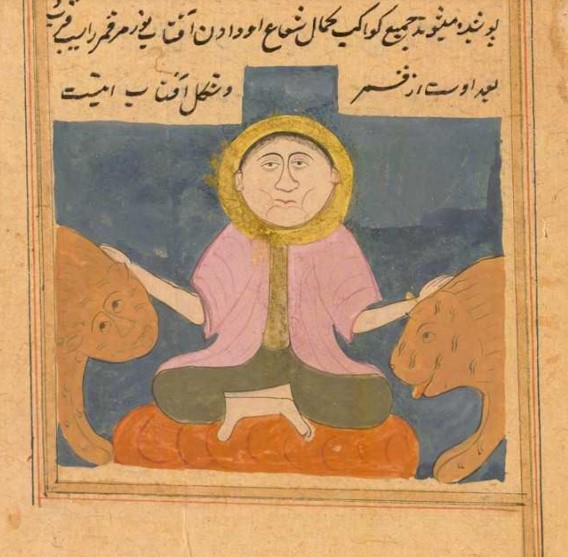 پوشیده میشوند جمیع کواکب بکمال شعاع او و دادن آفتابی نور مر قمر را بسبب قرب
بعد اوست از قمر و شکل آفتاب اینست